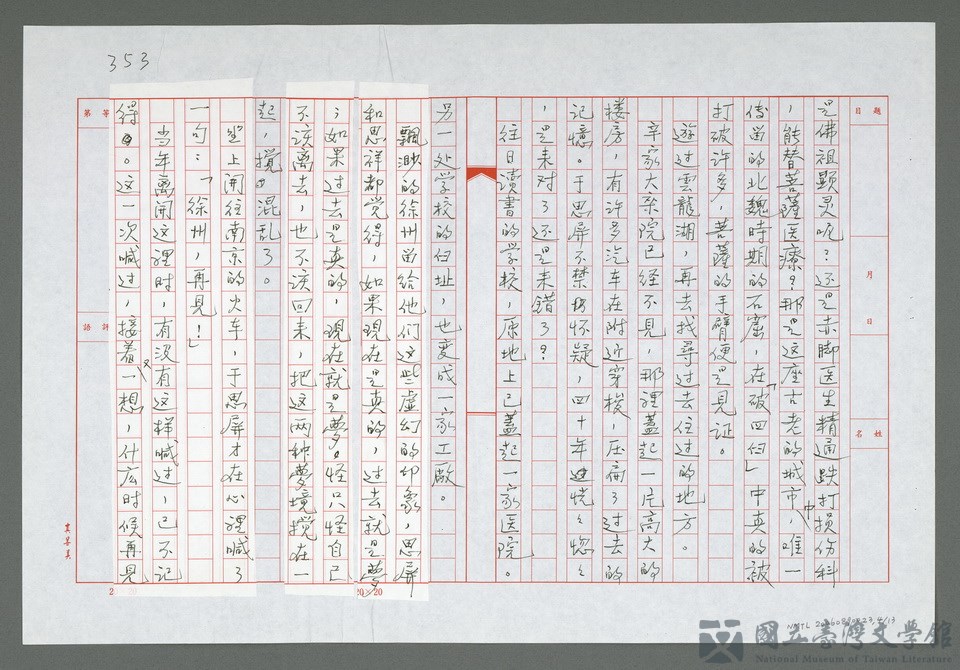 353
題目
月 日
姓名
等第
評語
是佛祖顯灵呢?还是赤脚医生精通跌打損伤科
,能替菩薩医療?那是这座古老的城市中,唯一
傳留的北魏時期的石窟,在「破四旧」中真的被
打破許多,菩薩的手臂便是見证。
遊过雲龍湖,再去找尋过去住过的地方。
辛家大杂院已经不見,那裡蓋起一片高大的
楼房,有许多汽车在附近穿梭,压扁了过去的
記憶。于思屏不禁怀疑,四十年恍恍惚惚
,是来对了还是来错了?
往日读書的学校,原地上已蓋起一家医院。
另一处学校的旧址,也变成一家工廠。
飄渺的徐州留给他们这些虚幻的印象,思屏
和思祥都觉得,如果现在是真的,过去就是夢
;如果过去是真的,現在就是夢。怪只怪自己
不该离去,也不该回来,把这两种夢境攪在一
起,攪混乱了。
坐上開往南京的火车,于思屏才在心裡喊了
一句:「徐州,再見!」
当年离開这裡时,有没有这样喊过,已不记
得。这一次喊过,接着又一想,什広时候再見
20×20
國立臺灣文學館
National Museum of Taiwan Literature